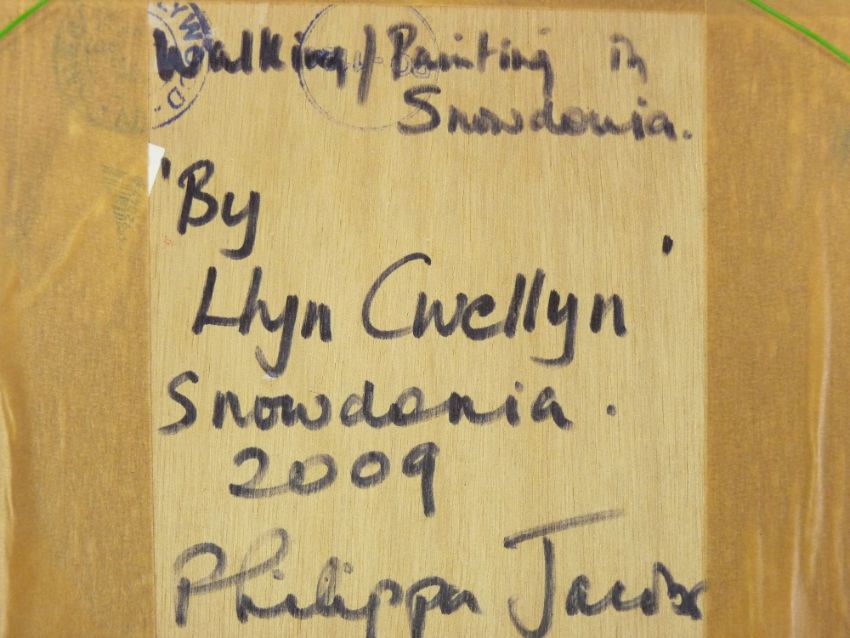 Walking/Painting in
Snowdonia.
'By
Llyn Cwellyn'
Snowdonia.
2009
Philippa Jacobs